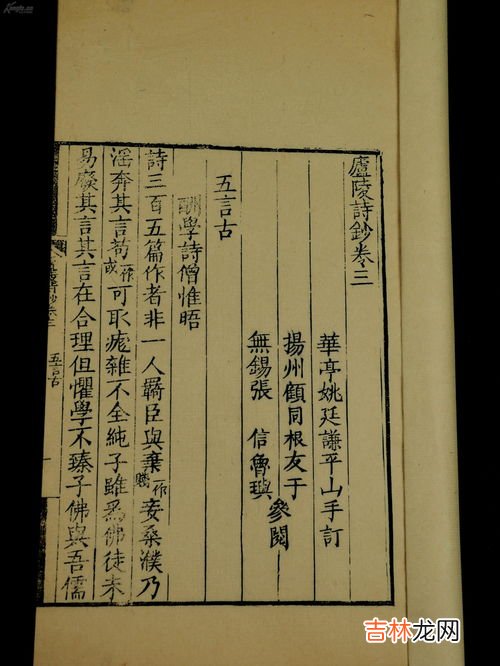 廬陵詩鈔卷三
華亭姚廷謙平山手訂
揚州顧同根友于
無錫張 信魯璵
參閱
五言古
酬學詩僧惟晤
詩三百五篇作者非一人羈臣與棄一作賤妾桑濮乃
淫奔其言苟一作或可取瘧雜不全純子雖爲佛徒未
易廢其言其言在合理但懼學不臻子佛與吾儒
五言古
吉林龙网